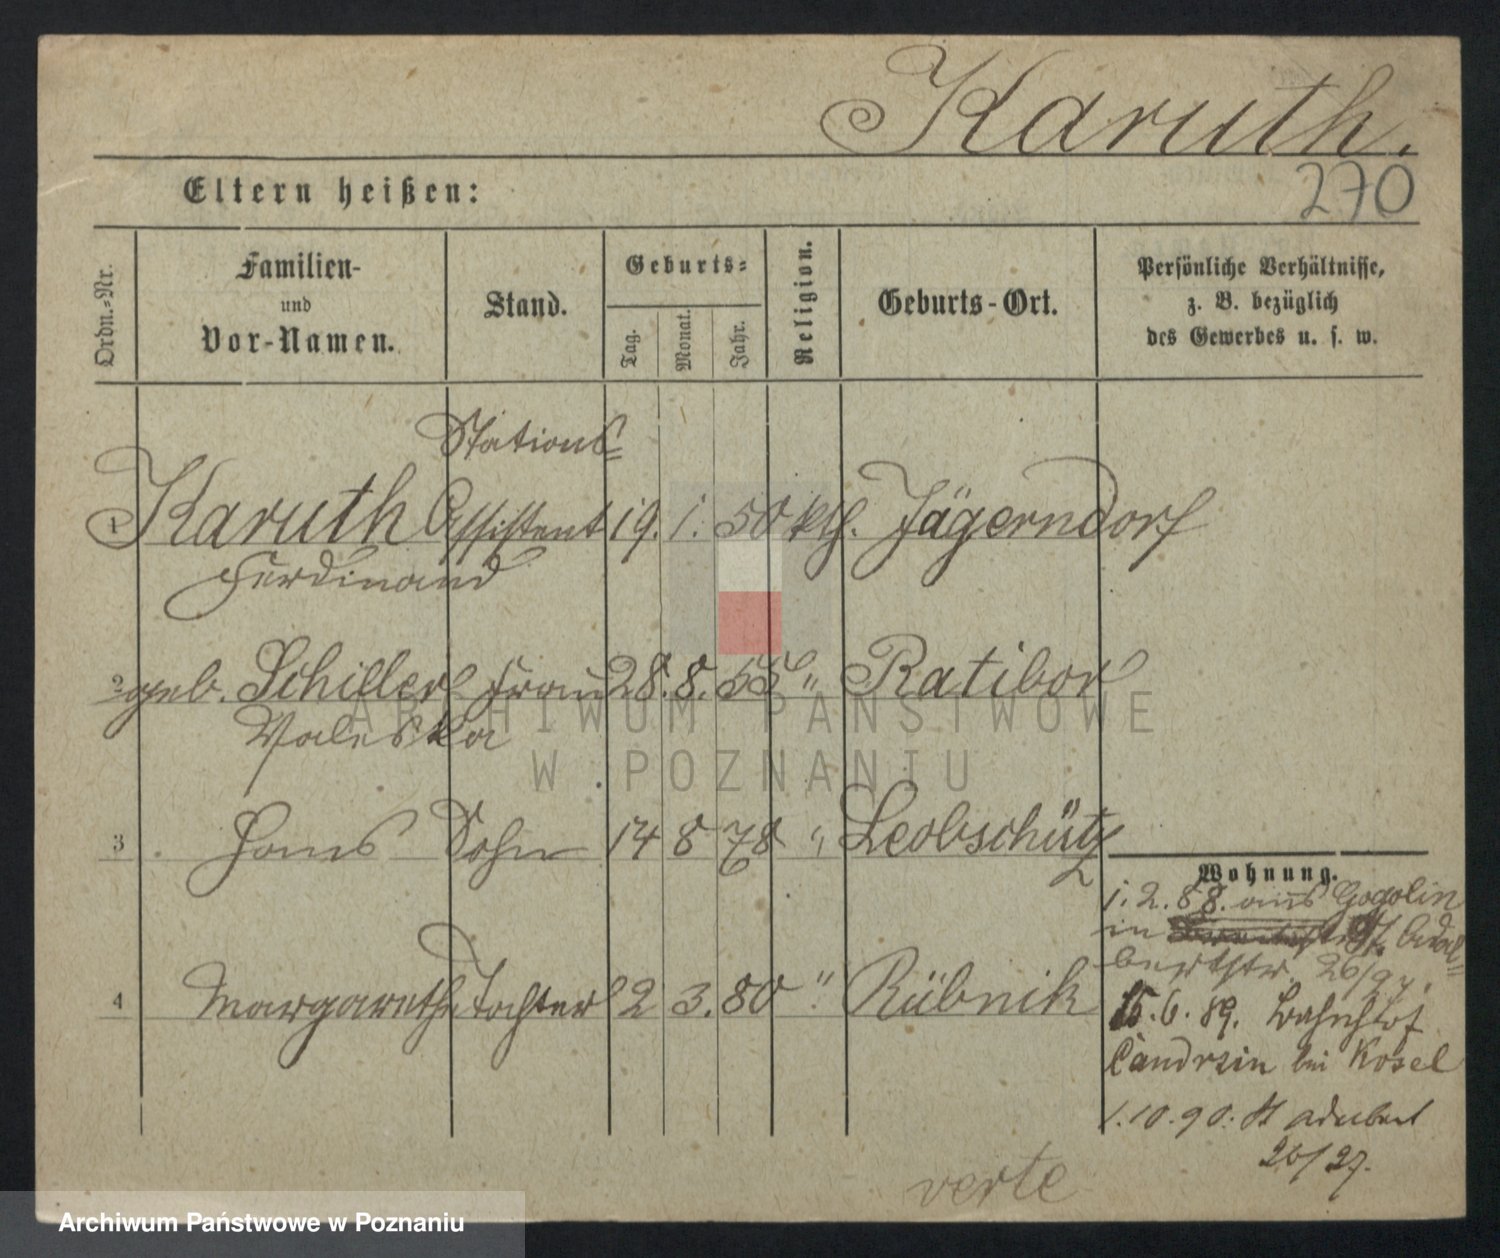 Karuth.
270
Eltern heißen:
Ordn.-Nr.
Familien-
und
Vor-Namen.
Stand.
Geburts-
Tag.
Monat.
Jahr.
Religion.
Geburts-Ort.
Persönliche Verhältnisse,
z. B. bezüglich
des Gewerbes u. s. w.
Stations-
1 Karuth Assistent 19. 1. 50 kth. Jägerndorf
Ferdinand
2 geb. Schiller Frau 28. 8. 55 " Ratibor
Valeska
3 Hans Sohn 14 8 78 " Leobschütz
4 Margarethe Tochter 2 3. 80 " Rübnik
Wohnung.
1. 2. 88. aus Gogolin
in St. Adal-
bertstr. 26/27.
15. 6. 89. Bahnhof
Candrzin bei Kosel
1. 10. 90. St Adalbert
26/27.
verte
ARCHIWUM PAŃSTWOWE
W POZNANIU
Archiwum Państwowe w Poznaniu